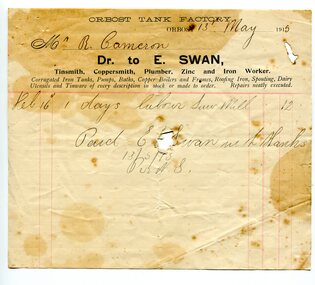 ORBOST TANK FACTORY,
ORBOST 13 May 1915
Mr R. Cameron
Dr. to E. SWAN,
Tinsmith, Coppersmith, Plumber, Zinc and Iron Worker.
Corrugated Iron Tanks, Pumps, Baths, Copper Boilers and Frames, Roofing Iron, Spouting, Dairy
Utensils and Tinware of every description in stock or made to order. Repairs neatly executed.
Feb 16 1 days labour Saw Mill 12
Paid E Swan with thanks
13/5/15